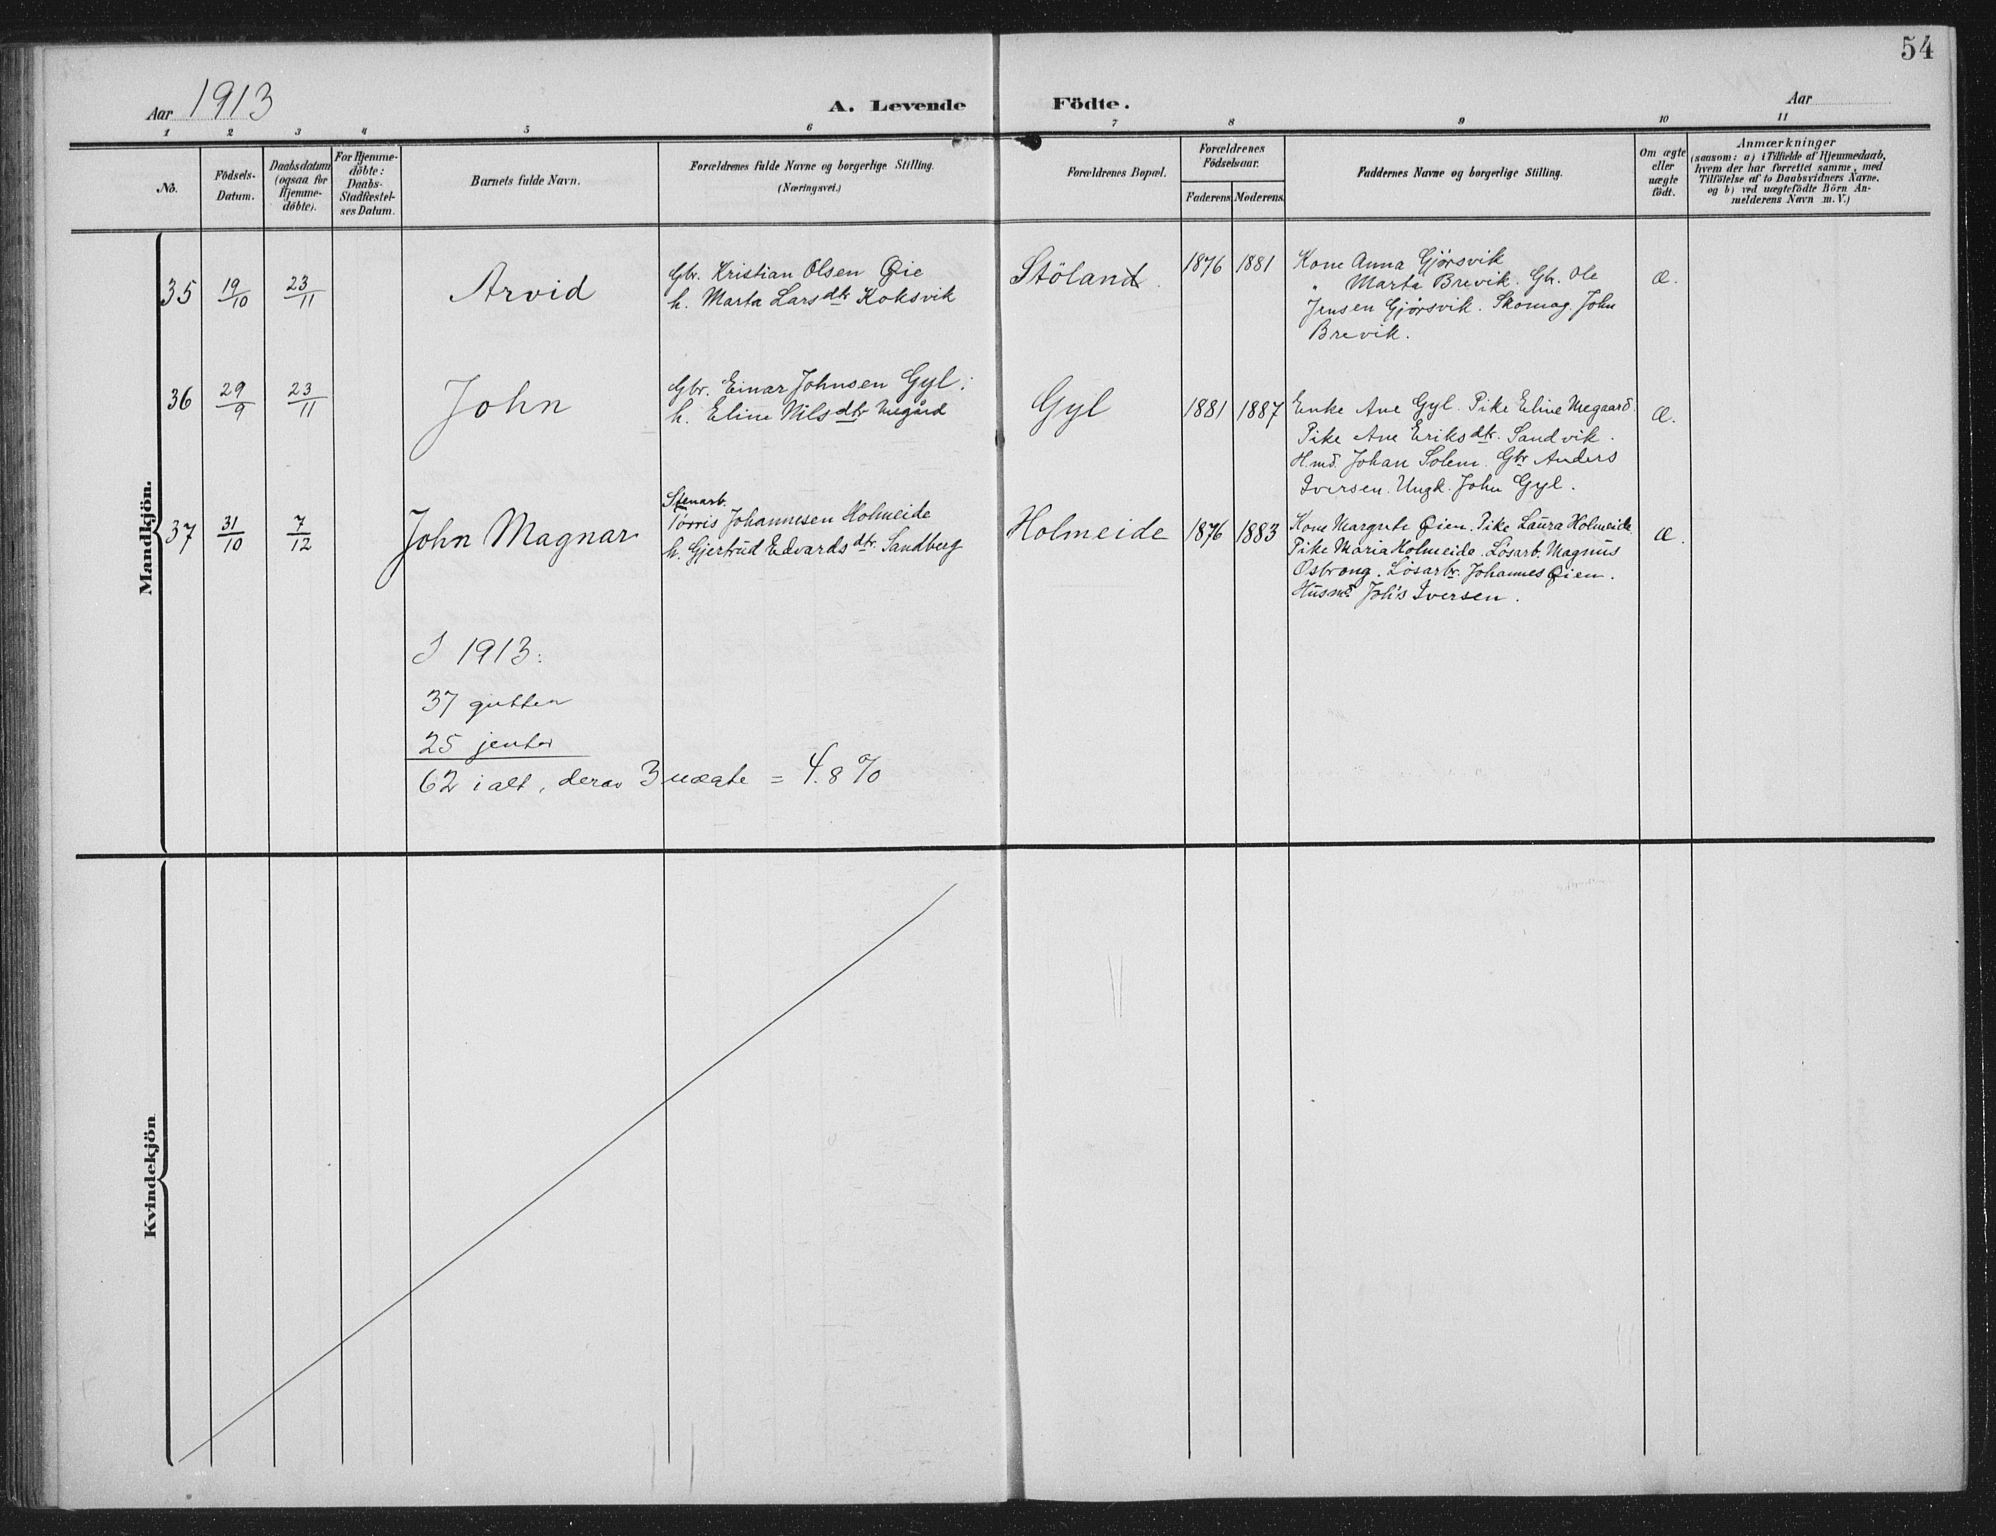 54
Aar 1913
A. Levende Födte.
Aar
1 2 3 4 5 6 7 8 9 10 11
No.
Födsels-
Datum.
Daabsdatum
(ogsaa for
Hjemme-
döbte).
For Hjemme-
döbte:
Daabs-
Stadfæstel-
ses Datum.
Barnets fulde Navn.
Forældrenes fulde Navne og borgerlige Stilling.
(Næringsvei.)
Forældrenes Bopæl.
Forældrenes
Födselsaar.
Faderens Moderens
Faddernes Navne og borgerlige Stilling.
Om ægte
eller
uægte
födt.
Anmærkninger
(saasom: a) i Tilfælde af Hjemmedaab,
hvem der har forrettet samme, med
Tilföielse af to Daabsvidners Navne,
og b) ved uægtefödte Börn An-
melderens Navn m. V.)
Mandkjön.
35 19/10 23/11 Arvid
Gbr. Kristian Olsen Øie
h. Marta Larsdtr Koksvik
Stöland
1876 1881
Kone Anna Gjørsvik
" Marta Brevik. Gbr. Ole
Jensen Gjørsvik. Skomag. John
Brevik.
æ.
36 29/9 23/11 John
Gbr. Einar Johnsen Gyl.
h. Eline Nilsdtr Megård
Gyl
1881 1887
Enke Ane Gyl. Pike Eline Megaard
Pike Ane Eriksdtr. Sandvik.
H.md. Johan Solem. Gbr Anders
Iversen. Ungk. John Gyl.
æ.
37 31/10 7/12 John Magnar
Stenarb.
Tørris Johannesen Holmeide
h. Gjertrud Edvardsdtr. Sandberg
Holmeide
1876 1883
Kone Margrete Øien. Pike Laura Holmeide
Pike Maria Holmeide. Løsarb. Magnus
Osbrong. Løsarbr. Johannes Øien.
Husmd Joh's Iversen.
æ.
I 1913:
37 gutter
25 jenter
62 i alt, derav 3 uægte = 4.8 %
Kvindekjön